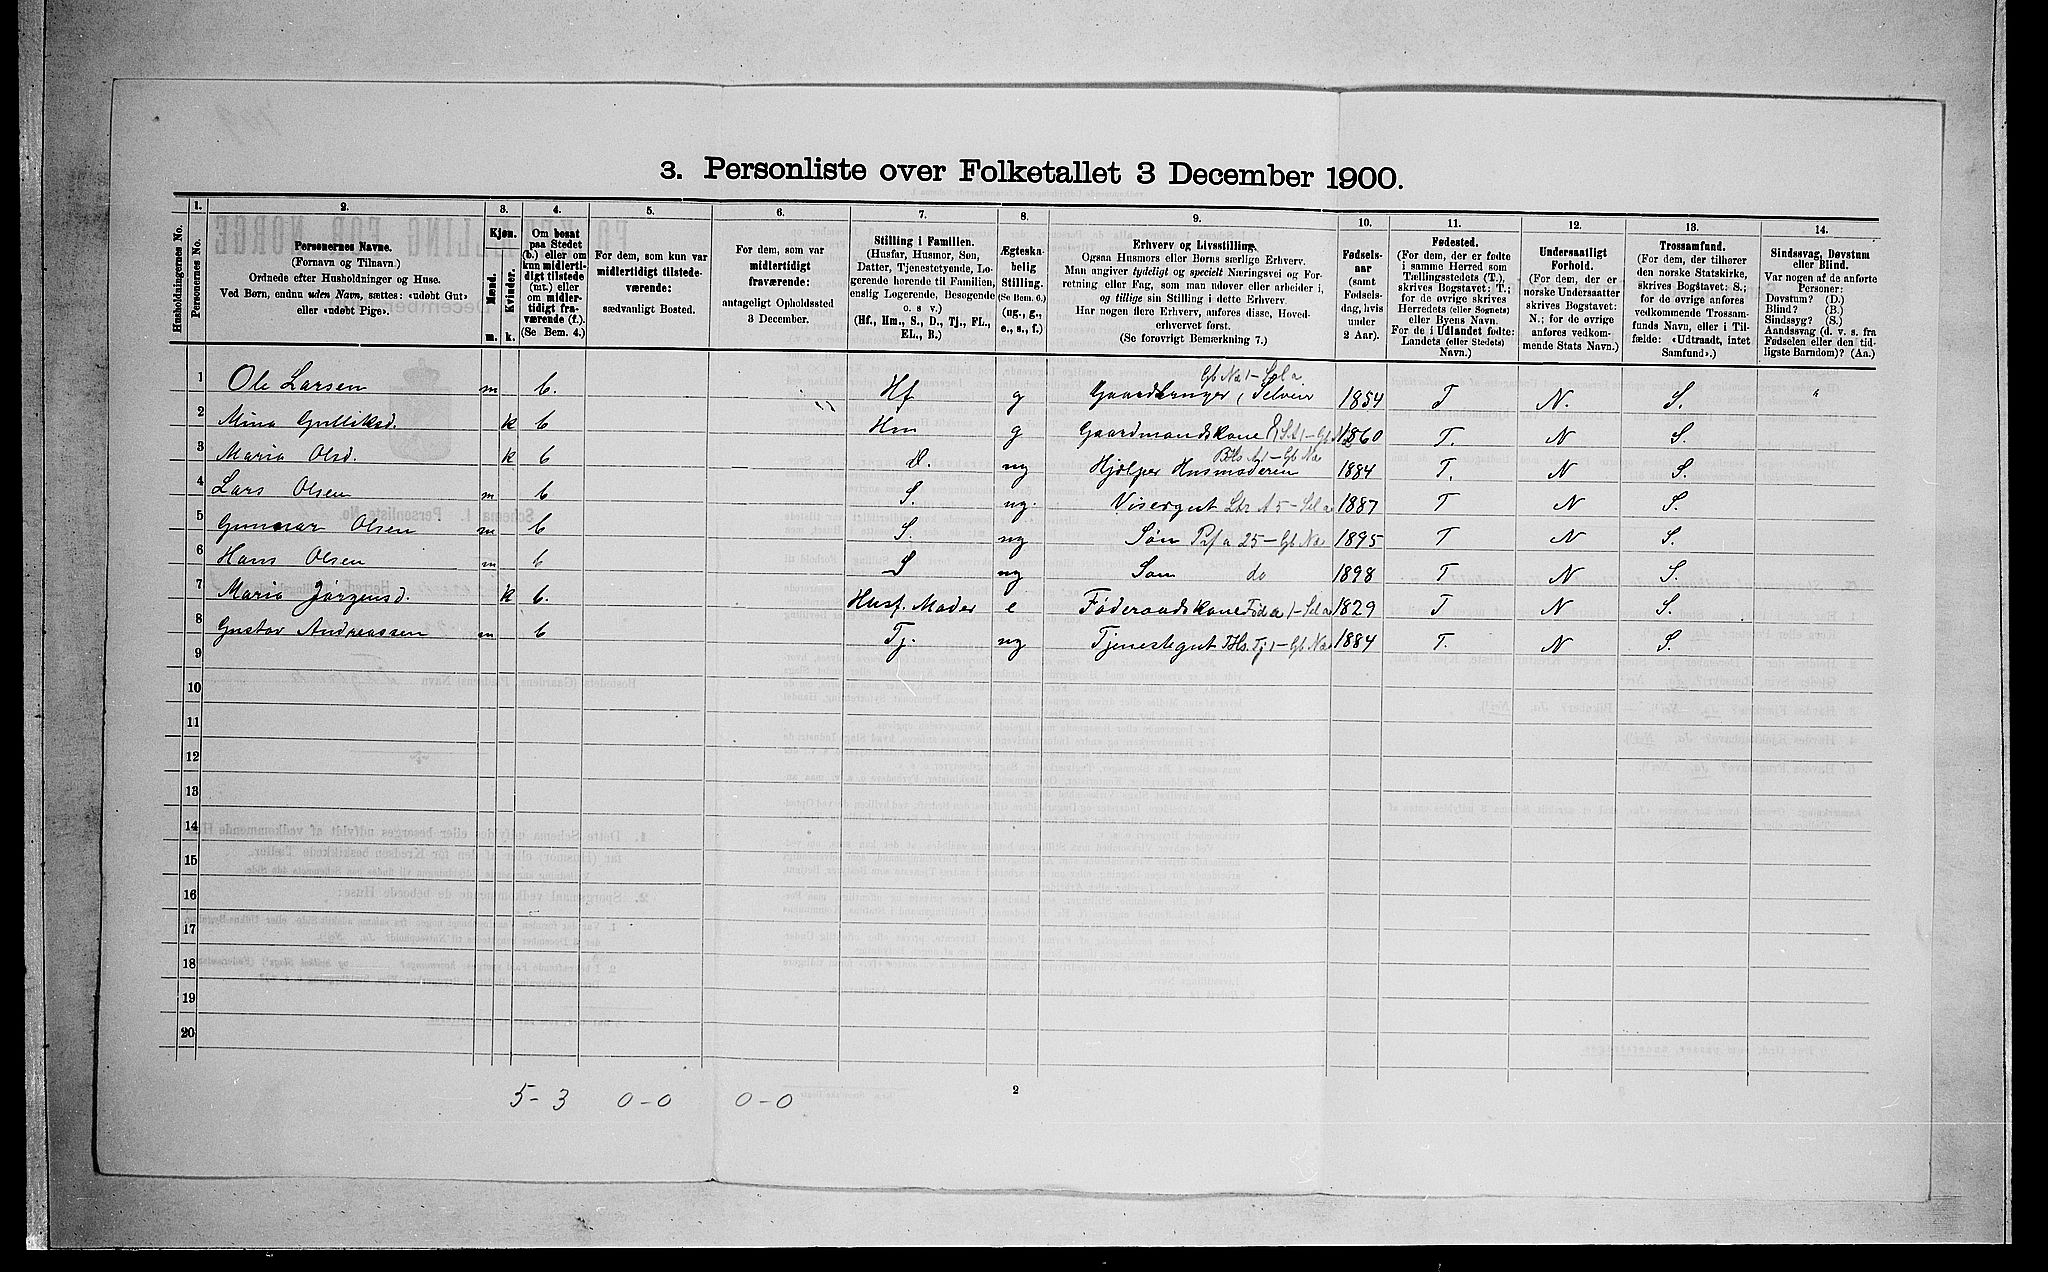 3. Personliste over Folketallet 3 December 1900.
1. 2. 3. 4. 5. 6. 7. 8. 9. 10. 11. 12. 13. 14.
Husholdningernes No.
Personernes No.
Personernes Navne.
(Fornavn og Tilnavn.)
Ordnede efter Husholdninger og Huse.
Ved Børn, endnu uden Navn, sættes: «udøbt Gut»
eller «udøbt Pige».
Kjøn.
Mænd.
Kvinder.
m. k.
Om bosat
paa Stedet
(b.) eller om
kun midlerti-
digt tilstede
(mt.) eller
om midler-
tidigt fra-
værende (f.).
(Se Bem. 4.)
For dem, som kun var
midlertidigt tilstede-
værende:
sædvanligt Bosted.
For dem, som var
midlertidigt
fraværende:
antageligt Opholdssted
3 December.
Stilling i Familien.
(Husfar, Husmor, Søn,
Datter, Tjenestetyende, Lo-
gerende hørende til Familien,
enslig Logerende, Besøgende
o. s v.)
(Hf., Hm., S., D., Tj., FL.,
EL., B.)
Ægteska-
belig
Stilling.
(Se Bem. 6.)
(ug., g.,
e., s., f.)
Erhverv og Livsstilling.
Ogsaa Husmors eller Børns særlige Erhverv.
Man angiver tydeligt og specielt Næringsvei og For-
retning eller Fag, som man udøver eller arbeider i,
og tillige sin Stilling i dette Erhverv.
Har nogen flere Erhverv, anføres disse, Hoved-
erhvervet først.
(Se forøvrigt Bemærkning 7.)
Fødsels-
aar
(samt
Fødsels-
dag, hvis
under
2 Aar).
Fødested.
(For dem, der er født
i samme Herred som
Tællingsstedets (T.),
skrives Bogstavet: T.;
for de øvrige skrives
Herredets (eller Sognets)
eller Byens Navn.
For de i Udlandet fødte:
Landets (eller Stedets)
Navn.)
Undersaatligt
Forhold.
(For dem, der er
norske Undersaatter
skrives Bogstavet:
N.; for de øvrige
anføres vedkom-
mende Stats Navn.)
Trossamfund.
(For dem, der tilhører
den norske Statskirke,
skrives Bogstavet: S.;
for de øvrige anføres
vedkommende Trossam-
funds Navn, eller i Til-
fælde: «Udtraadt, intet
Samfund».)
Sindssvag, Døvstum
eller Blind.
Var nogen af de anførte
Personer:
Døvstum? (D.)
Blind? (B.)
Sindssyg? (S.)
Aandssvag (d. v. s. fra
Fødselen eller den tid-
ligste Barndom)? (Aa.)
1 Ole Larsen m b. Hf g Gaardbruger, Selveier 1854 T N. S. "
2 Mina Gulliksd. k b Hm g Gaardmandskone 1860 T. N S.
3 Maria Olsd. k b D. ug Hjælper Husmoderen 1884 T. N S.
4 Lars Olsen m b S. ug. Visergut 1887 T N S.
5 Gunnar Olsen m b S. ug Søn 1895 T N S.
6 Hans Olsen m b S ug Søn do 1898 T N S.
7 Maria Jørgensd. k b. Husf. Moder e Føderaadskone 1829 T N S.
8 Gustav Andreassen m b Tj. ug Tjenestegut 1884 T. N S.
9
10
11
12
13
14
15
16
17
18
19
20
5-3 0-0 0-0
2